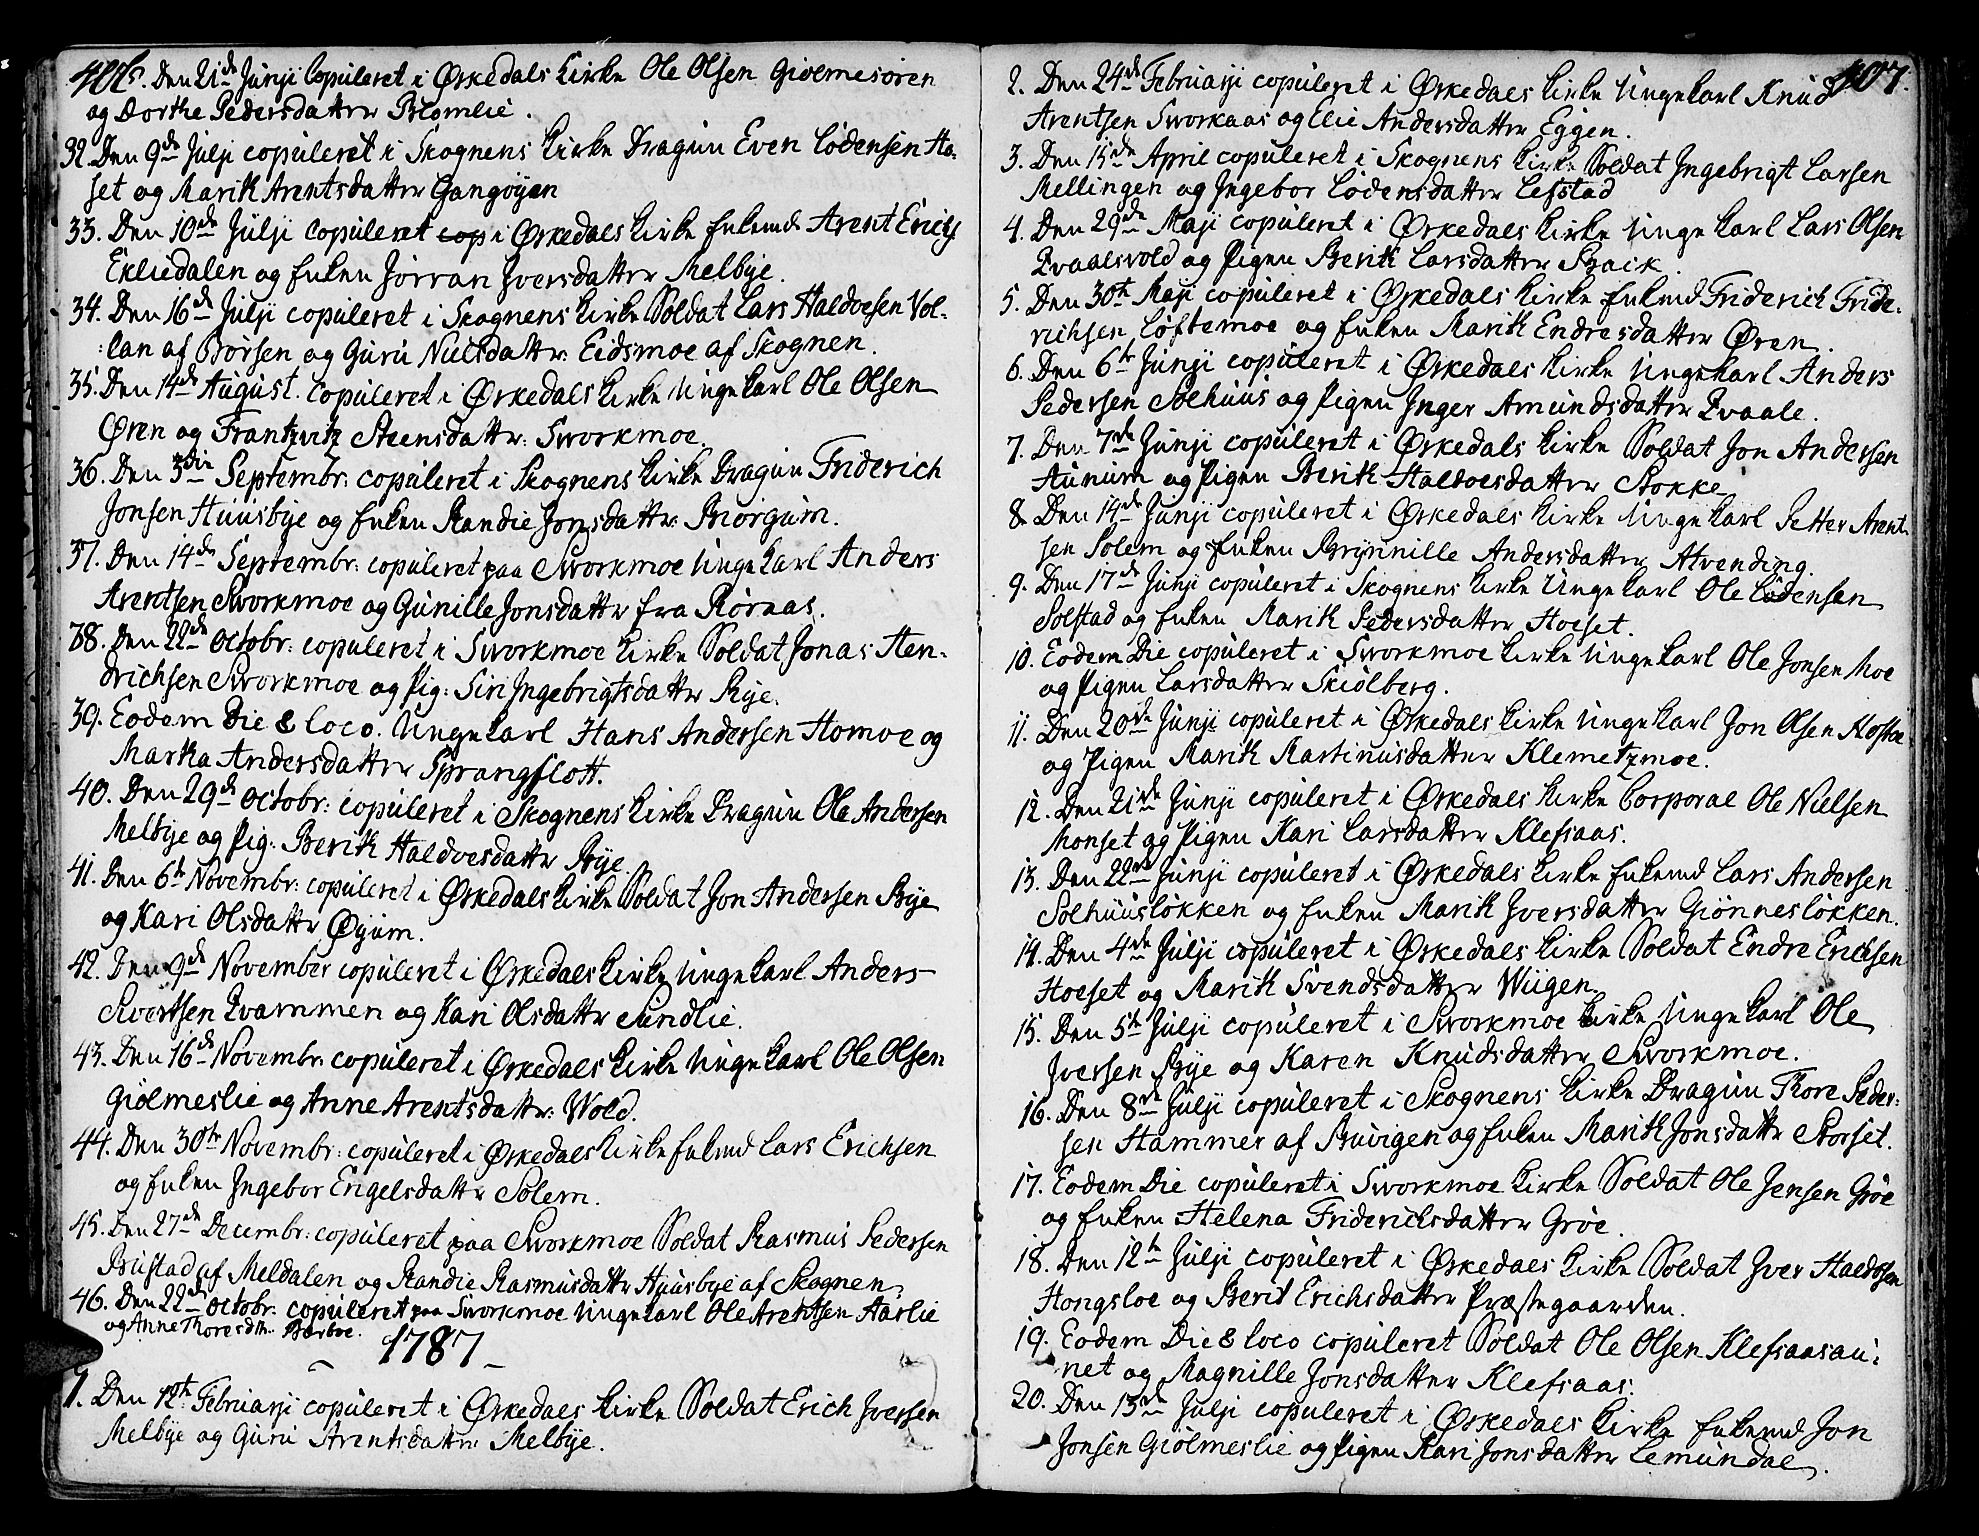 406. Den 21de Junji Copuleret i Ørkedals Kirke Ole Olsen Giølmesøren
og Dorthe Pedersdatter Blomlie.
32. Den 9de Julji copuleret i Skognens Kirke Dragun Even Lodensen Ho-
set og Marith Arentsdatter Gangøyen
33. Den 10de Julji copuleret cop i Ørkedals Kirke Enkemd Arent Erichs
Ekliedalen og Enken Jorran Iversdatter Melbye.
34. Den 16de Julji copuleret i Skognens Kirke Soldat Lars Haldoesen Vol-
:lan af Børsen og Guru Nielsdattr: Eidsmoe af Skognen.
35. Den 14de August. Copuleret i Ørkedals Kirke Ungekarl Ole Olsen
Øren og Frantzvitz Steensdattr: Sworkmoe.
36. Den 3die Septembr: copuleret i Skognens Kirke Dragun Friderich
Jonsen Huusbye og Enken Randie Jonsdattr: Biørgum.
37. Den 14de Septembr: copuleret paa Sworkmoe Ungekarl Anders
Arentsen Sworkmoe og Gunille Jonsdattr fra Røraas.
38. Den 22de Octobr: copuleret i Sworkmoe Kirke Soldat Jonas Hen-
drichsen Sworkmoe og Pig: Siri Ingebrigtsdattr Rye.
39. Eodem Die & loco. Ungekarl Hans Andersen Homoe og
Martha Andersdatter Sprangflott.
40. Den 29de Octobr: copuleret i Skognens Kirke Dragun Ole Andersen
Melbye og Pig: Berith Haldoesdattr Rye.
41. Den 6te Novembr: copuleret i Ørkedals Kirke Soldat Jon Andersen Rye
og Kari Olsdattr Øyum.
42. Den 9de November copuleret i Ørkedals Kirke Ungekarl Anders
Sivertsen Qvammen og Kari Olsdattr Sundlie.
43. Den 16de Novembr: copuleret i Ørkedals Kirke Ungekarl Ole Olsen
Giølmeslie og Anne Arentsdattr: Wold.
44. Den 30te Novembr: copuleret i Ørkedals Kirke Enkemd Lars Erichsen
og Enken Ingebor Engelsdattr Solem.
45. Den 27de Decembr: copuleret paa Sworkmoe Soldat Rasmus Pedersen
Riistad af Meldalen og Randie Rasmusdattr Huusbye af Skognen.
46. Den 22de Octobr: copuleret paa Sworkmoe Ungekarl Ole Arentsen Aarlie
og Anne Thoresdtr. Bærboe.
1787
1. Den 12te Februarji copuleret i Ørkedals Kirke Soldat Erich Iversen
Melbye og Guru Arentsdattr: Melbye.
407.
2. Den 24de Februarji copuleret i Ørkedals Kirke Ungekarl Knud
Arentsen Sworkaas og Elie Andersdattr Eggen.
3. Den 15de April copuleret i Skognens Kirke Soldat Ingebrigt Larsen
Mellingen og Ingebor Lodensdattr Lefstad
4. Den 29de Maji copuleret i Ørkedals Kirke Ungekarl Lars Olsen
Qvaalsvold og Pigen Berith Larsdatter Back.
5. Den 30te Maji copuleret i Ørkedals Kirke Enkemd Friderich Fride-
richsen Løftemoe og Enken Marith Endresdattr Øren.
6. Den 6te Junji copuleret i Ørkedals Kirke Ungekarl Anders
Pedersen Solhuus og Pigen Inger Amundsdattr Qvaale.
7. Den 7de Junji copuleret i Ørkedals Kirke Soldat Jon Andersen
Aunum og Pigen Berith Haldoesdatter Stokke
8 Den 14de Junji copuleret i Ørkedals Kirke Ungekarl Petter Arent
sen Solem og Enken Brynnille Andersdatter Alvending.
9. Den 17de Junji copuleret i Skognens Kirke Ungekarl Ole Lodensen
Solstad og Enken Marith Pedersdatter Hoeset.
10. Eodem Die copuleret i Sworkmoe Kirke Ungekarl Ole Jonsen Moe
og Pigen Larsdatter Skiølberg.
11. Den 20de Junji copuleret i Ørkedals Kirke Ungekarl Jon Olsen Hostoe
og Pigen Marith Martinusdatter Klemetzmoe.
12. Den 21de Junji copuleret i Ørkedals Kirke Corporal Ole Nielsen
Monset og Pigen Kari Larsdatter Klefsaas.
13. Den 22de Junji copuleret i Ørkedals Kirke Enkemd Lars Andersen
Solhuusløkken og Enken Marith Iversdatter Giønnesløkken.
14. Den 4de Julji copuleret i Ørkedals Kirke Soldat Endre Erichsen
Hoeset og Marith Svendsdatter Wiigen.
15. Den 5te Julji copuleret i Sworkmoe Kirke Ungekarl Ole
Iversen Rye og Karen Knudsdatter Sworkmoe.
16. Den 8de Julji copuleret i Skognens Kirke Dragun Thore Peder-
sen Hammer af Buvigen og Enken Marith Jonsdattr Storset.
17. Eodem Die copuleret i Sworkmoe Kirke Soldat Ole Jensen Grøe
og Enken Helena Friderichsdatter Grøe.
18. Den 12te Julji copuleret i Ørkedals Kirke Soldat Iver Haldosen
Hongsloe og Berit Erichsdatter Præstegaarden.
19. Eodem Die & loco copuleret Soldat Ole Olsen Klefsaasau-
net og Magnille Jonsdatter Klefsaas.
20. Den 13de Julji copuleret i Ørkedals Kirke Enkemd Jon
Jonsen Giølmeslie og Pigen Kari Jonsdatter Lemundal.